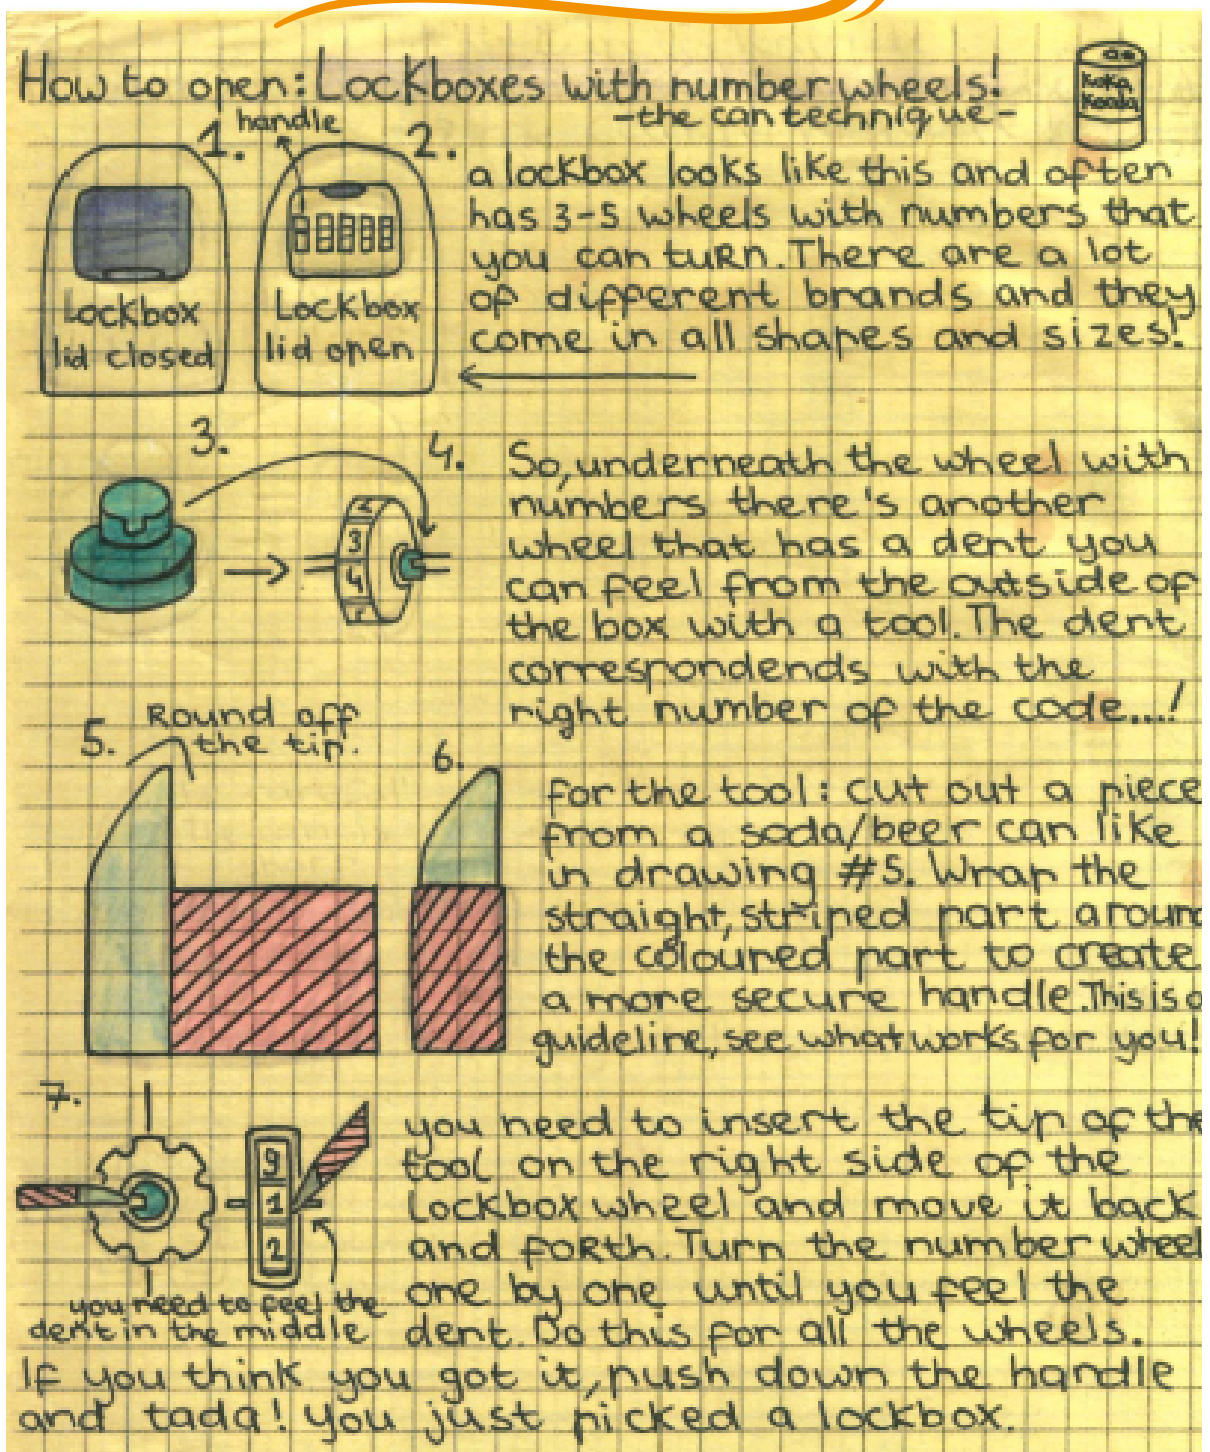 How to open: Lockboxes with number wheels!
-the can technique-
KoKa
Koala
1. handle 2.
Lockbox
lid closed
Lockbox
lid open
a lockbox looks like this and often
has 3-5 wheels with numbers that
you can tuRn. There are a lot
of different brands and they
come in all shapes and sizes!
3. 4.
2
3
4
So, underneath the wheel with
numbers there's another
wheel that has a dent you
can feel from the outside of
the box with a tool. The dent
correspondends with the
right number of the code....!
5. Round off
the tip.
6.
for the tool: cut out a piece
from a soda/beer can like
in drawing #5. Wrap the
straight, striped part around
the coloured part to create
a more secure handle. This is a
guideline, see what works for you!
7.
9
1
2
you need to feel the
dent in the middle
you need to insert the tip of the
tool on the right side of the
lockbox wheel and move it back
and foRth. Turn the number wheel
one by one until you feel the
dent. Do this for all the wheels.
If you think you got it, push down the handle
and tada! You just picked a lockbox.